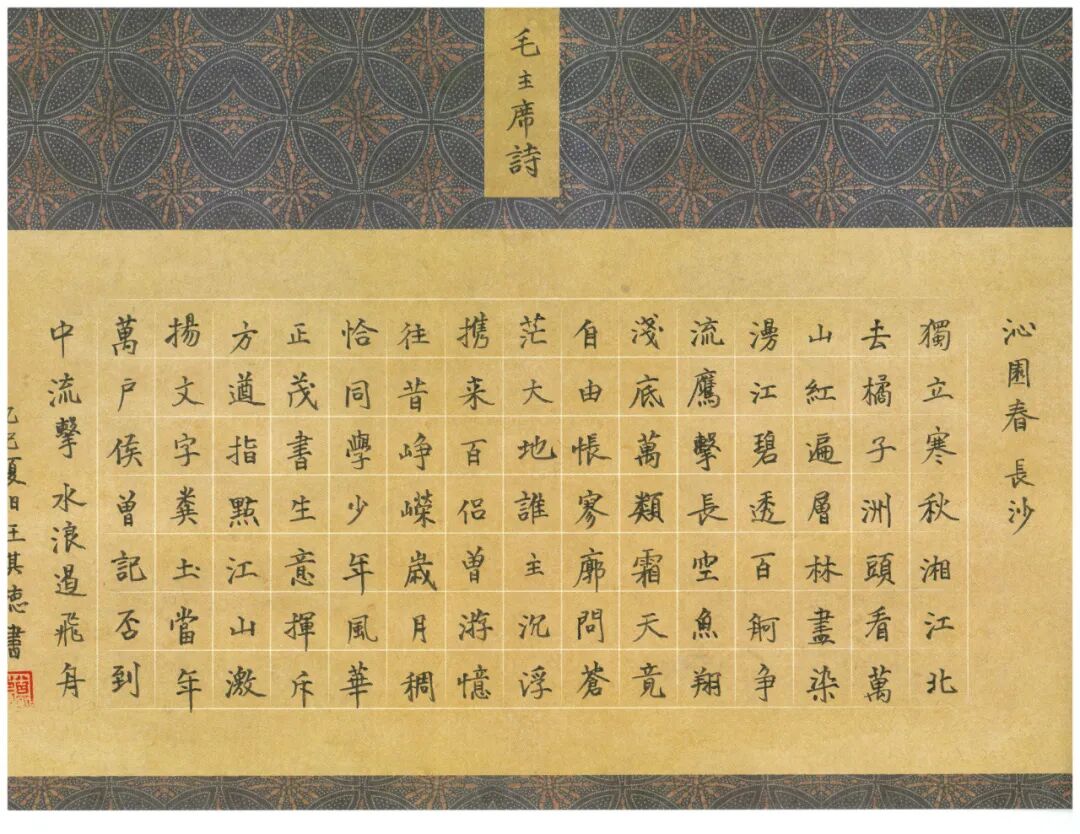 毛主席詩
沁園春 長沙
獨立寒秋湘江北
去橘子洲頭看萬
山紅遍層林盡染
漫江碧透百舸争
流鷹擊長空魚翔
淺底萬類霜天竟
自由帳寥廓問蒼
茫大地誰主沉浮
携来百侣曾游憶
往昔峥嶸歲月稠
恰同學少年風華
正茂書生意揮斥
方遒指點江山激
揚文字糞土當年
萬户侯曾記否到
中流擊水浪遏飛舟
乙巳夏日王德書